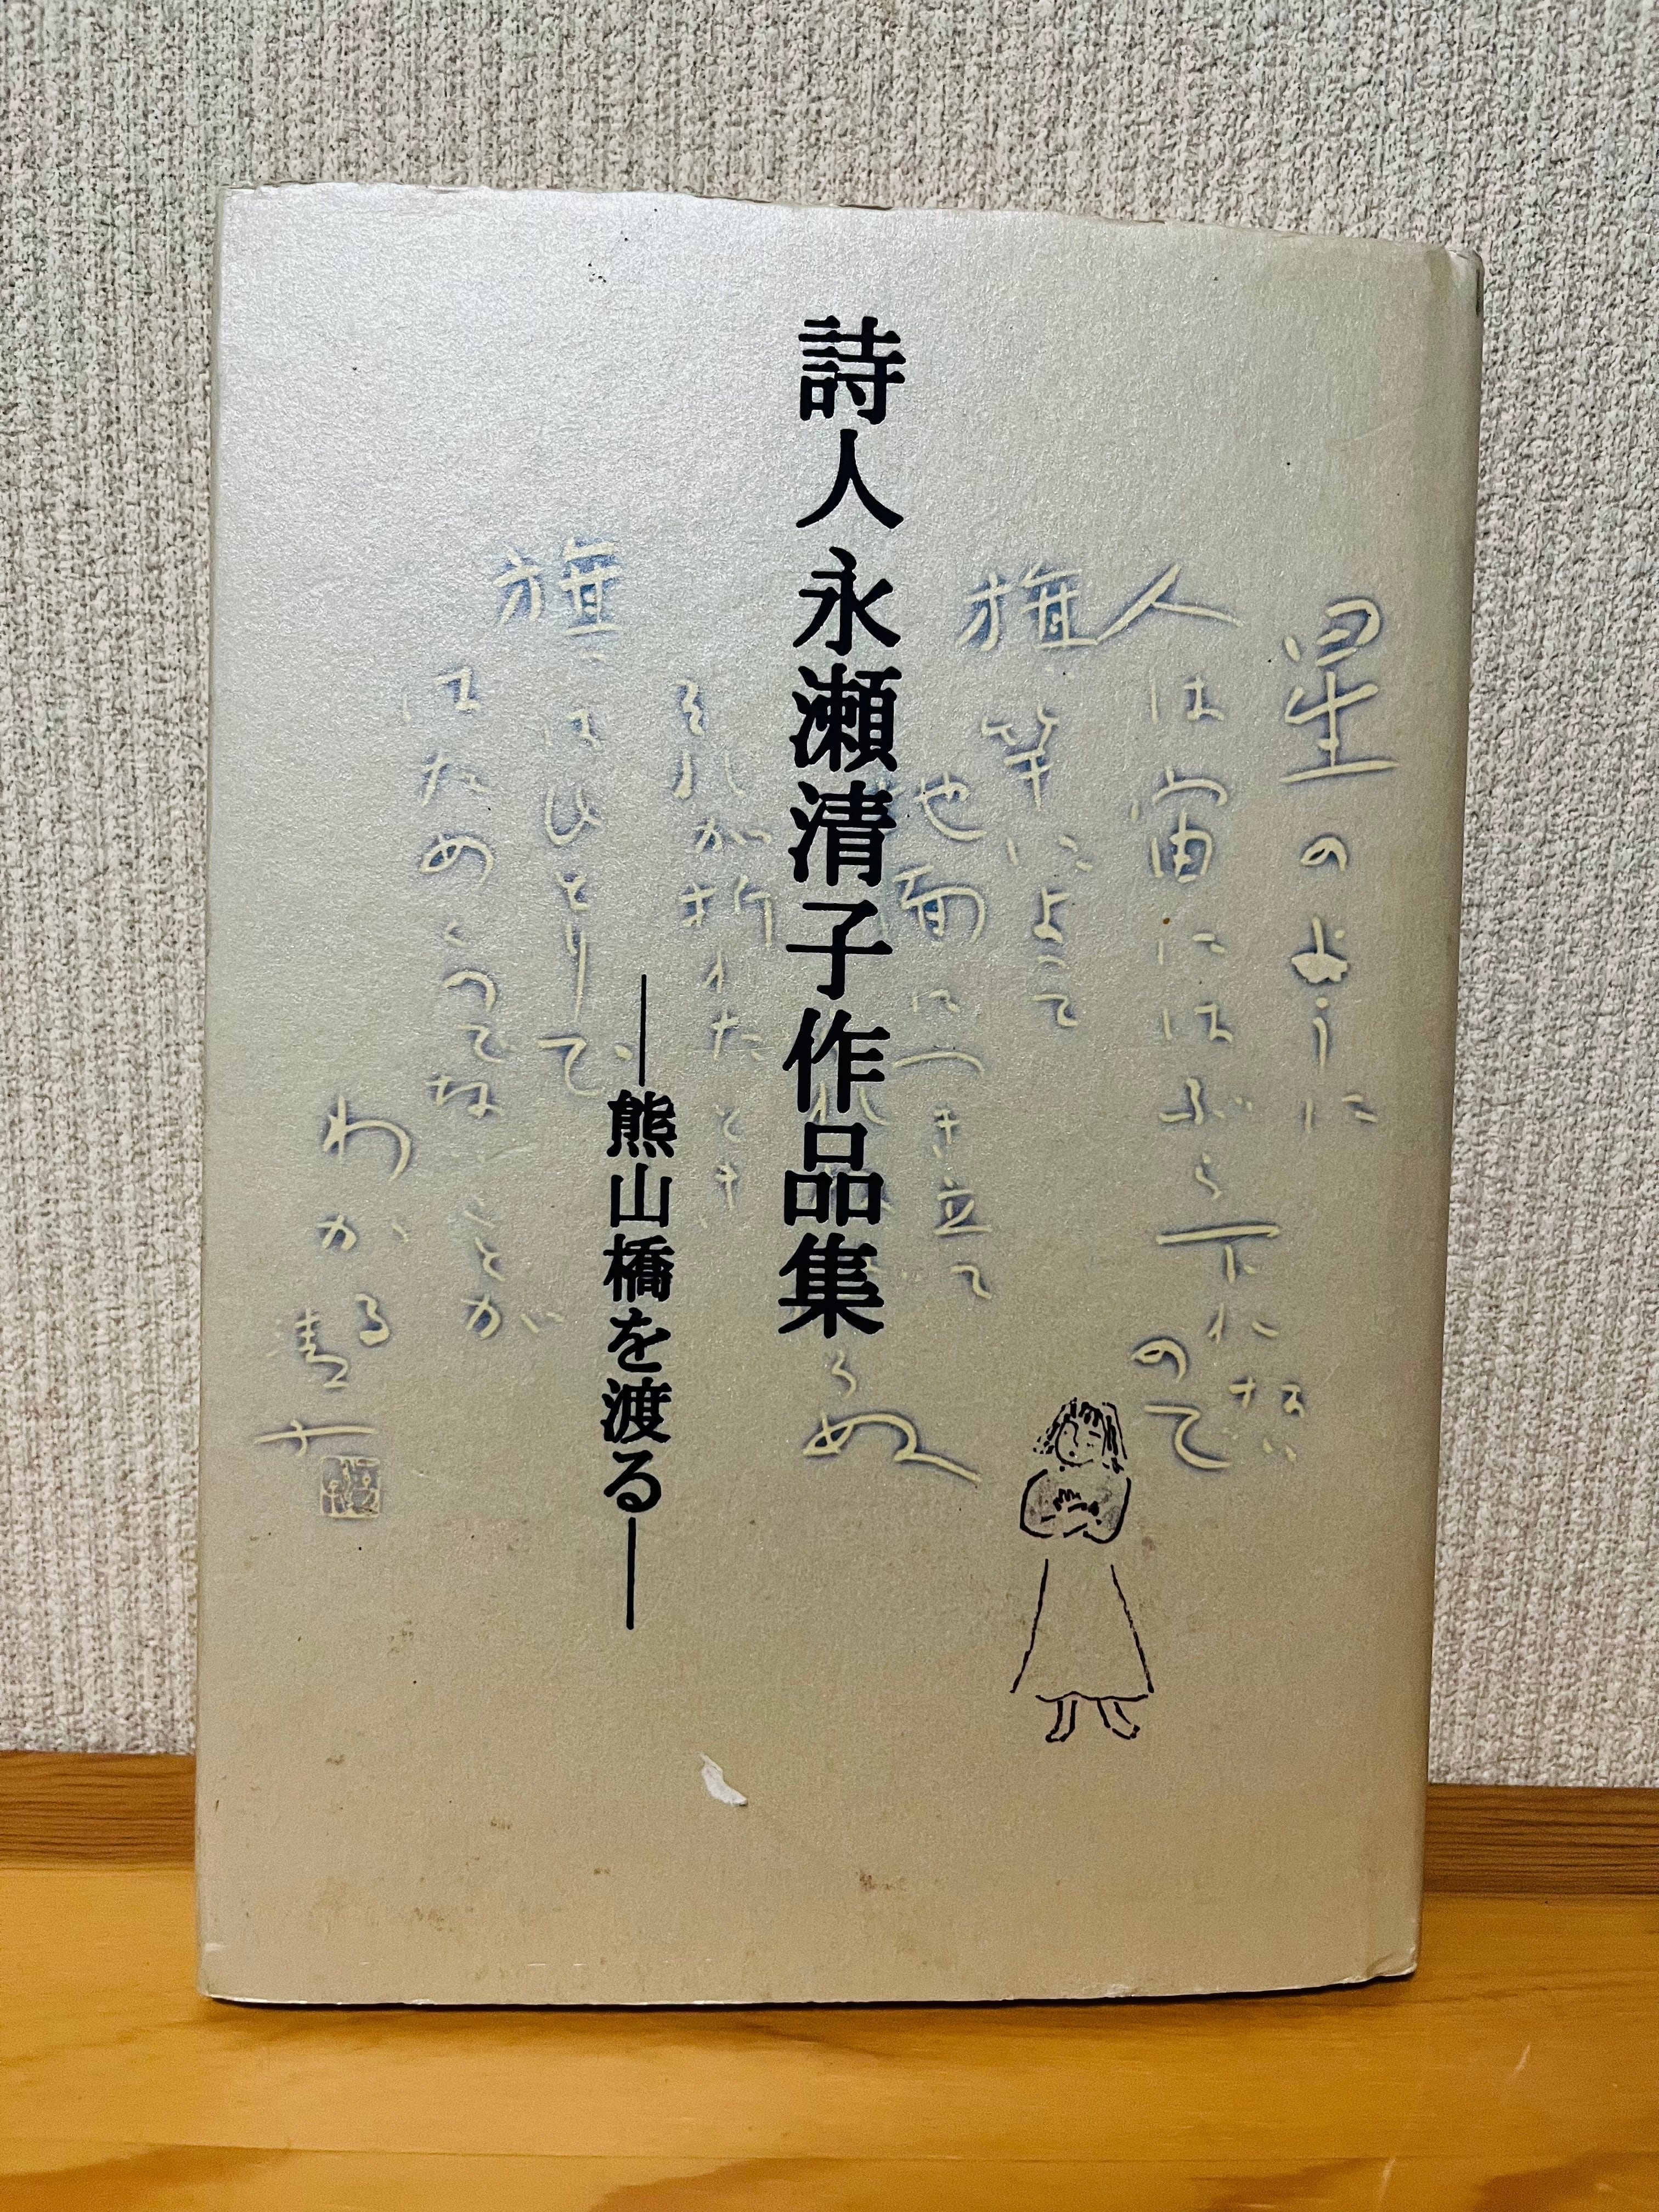 詩人永瀬清子作品集
―熊山橋を渡る―
星のように
人は宙にはぶら下れない
ので
旗竿によって
地面につき立て
らぬ
それが折れたとき
旗はひとりで
はため でないことが
わかる
清子